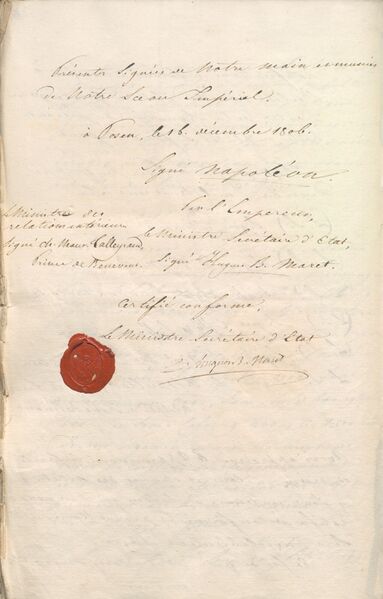 Présentes signées de Notre main et munies
de Notre Sceau Impérial.
à Posen, le 16. décembre 1806.
Signé Napoléon.
Par l'Empereur,
le Ministre Secrétaire d'Etat,
Signé Hugues B. Maret.
Le Ministre des
relations extérieures
signé ch. Maur. Talleyrand,
Prince de Benevent.
Certifié conforme,
Le Ministre Secrétaire d'Etat
Hugues B. Maret